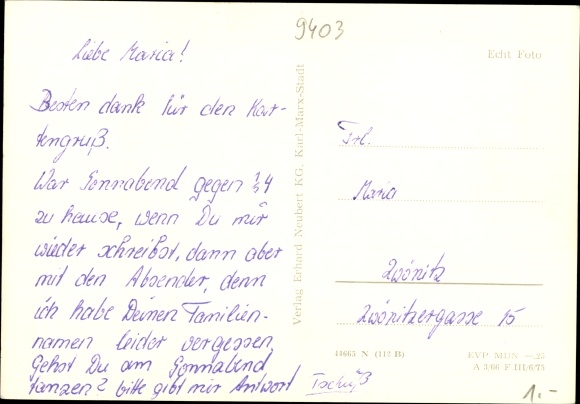 9403
Liebe Maria!
Besten dank für den Kar-
tengruß.
War Sonnabend gegen
zu hause, wenn Du mir
wieder schreibst, dann aber
mit den Absender, denn
ich habe Deinen Familien-
namen leider vergessen,
Gehst Du am Sonnabend
tanzen? bitte gibt mir Antwort Tschüß
Verlag Erhard Neubert KG, Karl-Marx-Stadt
Echt Foto
Frl.
Maria
Zwönitz
Zwönitzergasse 15
44665 N (112 B)
EVP MDN —,25
A 3/66 F III/6/73
1.-